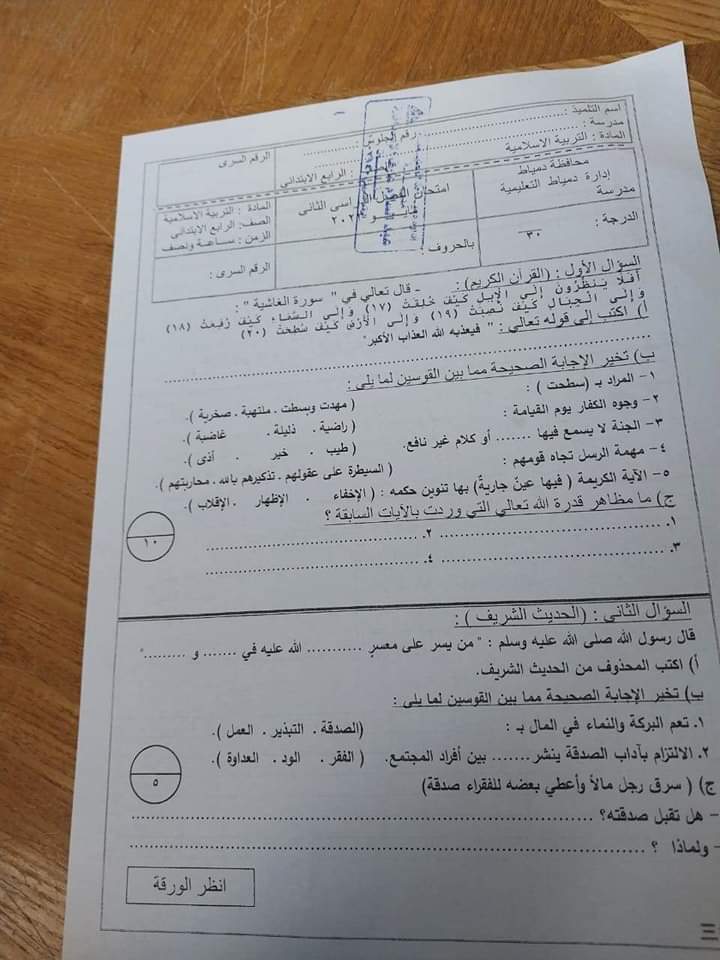 اسم التلميذ : ....................
مدرسة : .................... رقم الجلوس : ....................
المادة : التربية الاسلامية .................... الرابع الابتدائي
الرقم السرى
محافظة دمياط
إدارة دمياط التعليمية
مدرسة
امتحان الفصل الدراسى الثانى
المادة : التربية الاسلامية
الصف: الرابع الابتدائى
الزمن : ساعة ونصف
الدرجة : ــــ ٣٠
بالحروف :
الرقم السرى :
السؤال الأول : (القرآن الكريم) : - قال تعالي في " سورة الغاشية " :
أَفَلَا يَنظُرُونَ إِلَى الْإِبِلِ كَيْفَ خُلِقَتْ (١٧) وَإِلَى السَّمَاءِ كَيْفَ رُفِعَتْ (١٨)
وَإِلَى الْجِبَالِ كَيْفَ نُصِبَتْ (١٩) وَإِلَى الْأَرْضِ كَيْفَ سُطِحَتْ (٢٠)
أ) اكتب إلى قوله تعالي : " فيعذبه الله العذاب الأكبر"
....................
ب) تخير الإجابة الصحيحة مما بين القوسين لما يلى :
١- المراد بـ (سطحت ) : ( مهدت وسطت . ملتهبة . صخرية ).
٢- وجوه الكفار يوم القيامة : ( راضية . ذليلة . غاضبة ).
٣- الجنة لا يسمع فيها ....... أو كلام غير نافع. ( طيب . خير . أذى ).
٤- مهمة الرسل تجاه قومهم : ( السيطرة على عقولهم . تذكيرهم بالله . محاربتهم ).
٥- الآية الكريمة ( فيها عينٌ جاريةٌ) بها تنوين حكمه : ( الإخفاء . الإظهار . الإقلاب ).
ج) ما مظاهر قدرة الله تعالي التي وردت بالآيات السابقة ؟
١. .................... ٢. ....................
٣. .................... ٤. ....................
١٠
السؤال الثانى : (الحديث الشريف ) :
قال رسول الله صلى الله عليه وسلم : " من يسر على معسرٍ ........... الله عليه في ....... و ........."
أ) اكتب المحذوف من الحديث الشريف.
ب) تخير الإجابة الصحيحة مما بين القوسين لما يلى :
١. تعم البركة والنماء في المال بـ : (الصدقة . التبذير . العمل ).
٢. الالتزام بآداب الصدقة ينشر....... بين أفراد المجتمع. ( الفقر . الود . العداوة ).
٥
ج) ( سرق رجل مالاً وأعطي بعضه للفقراء صدقة)
- هل تقبل صدقته؟ ....................
- ولماذا ؟ ....................
انظر الورقة